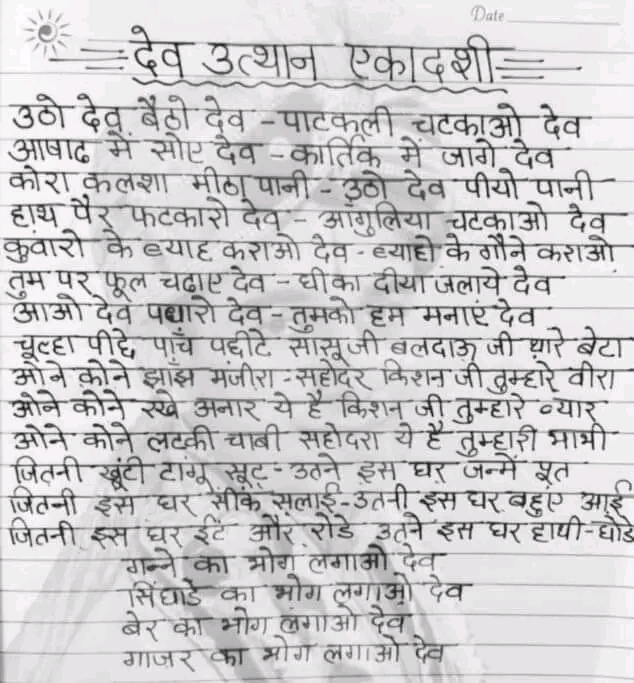 Date
देव उत्थान एकादशी
उठो देव बैठो देव - पाटकली चटकाओ देव
आषाढ में सोए देव - कार्तिक में जागे देव
कोरा कलशा मीठा पानी - उठो देव पीयो पानी
हाथ पैर फटकारो देव - आंगुलिया चटकाओ देव
कुंवारो के ब्याह कराओ देव - ब्याहो के गौने कराओ
तुम पर फूल चढाए देव - घीका दीया जलाये देव
आओ देव पधारो देव - तुमको हम मनाएं देव
चूल्हा पीछे पाँच पछीटे सासू जी बलदाऊ जी धारे बेटा
ओने कोने झाँझ मंजीरा - सहोदर किशन जी तुम्हारे वीरा
ओने कोने रखे अनार ये है किशन जी तुम्हारे व्यार
ओने कोने लटकी चाबी सहोदरा ये है तुम्हारी भाभी
जितनी खूंटी टांगू सूट - उतने इस घर जन्में पूत
जितनी इस घर सींक सलाई - उतनी इस घर बहुए आई
जितनी इस घर ईंट और रोडे उतने इस घर हाथी-घोडे
गन्ने का भोग लगाओ देव
सिंघाडे का भोग लगाओ देव
बेर का भोग लगाओ देव
गाजर का भोग लगाओ देव